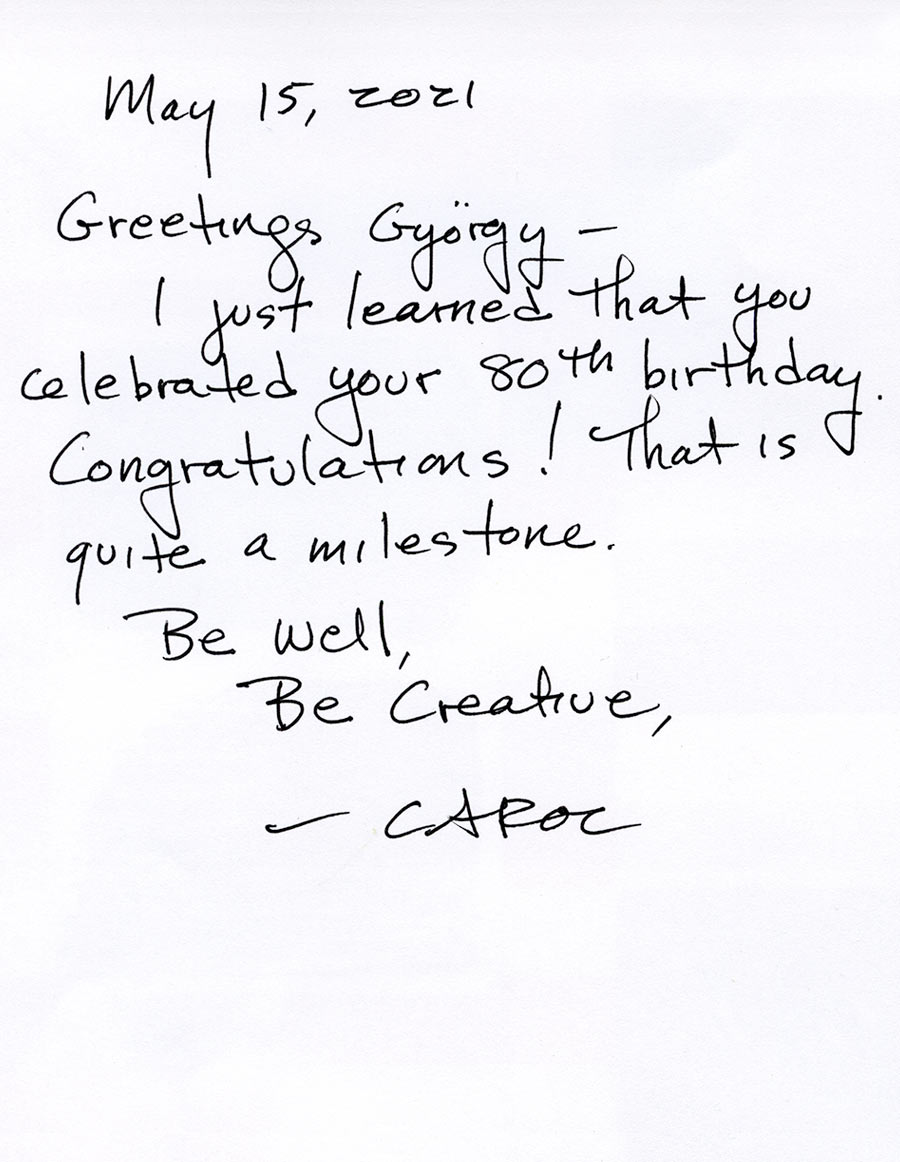 May 15, 2021
Greetings György –
I just learned that you
celebrated your 80th birthday.
Congratulations! That is
quite a milestone.
Be well,
Be Creative,
— CAROL